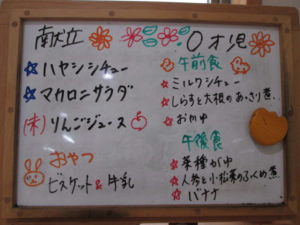 献立
☆ハヤシシチュー
☆マカロニサラダ
(末)りんごジュース
おやつ
ビスケット&牛乳
0才児
午前食
*ミルクシチュー
*しらすと大根のあっさり煮
*おかゆ
午後食
*菜種がゆ
*人参と小松菜のふくめ煮
*バナナ